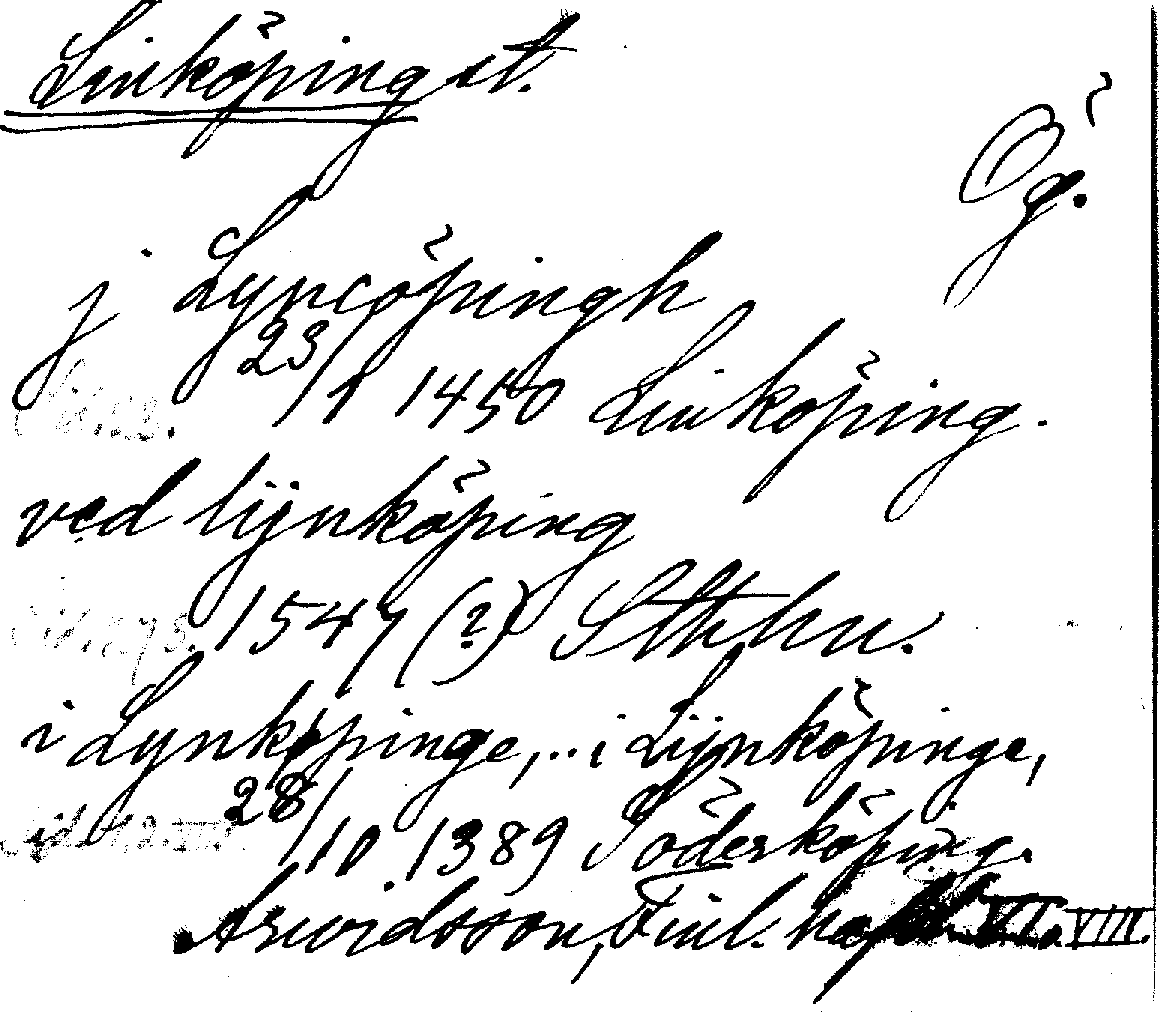 Linköping st.
Ög.
j Lyncöpingh
23/1 1450 Linköping.
ved lijnköping
1547 (?) Sthlm.
i Lynkøpinge,.. i Lijnköpinge,
28/10 1389 Söderköping.
Arwidsson, Finl. VIII.